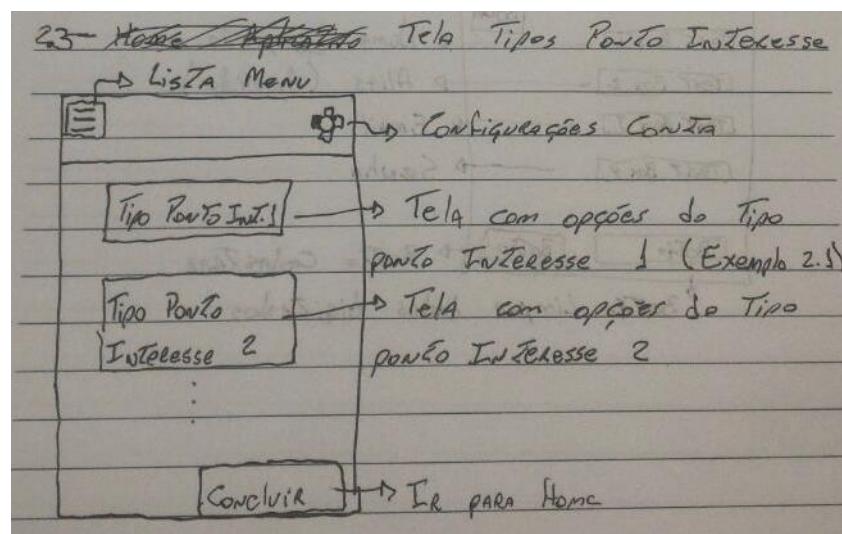 2.3 - Home Aplicativo Tela Tipos Ponto Interesse
Lista Menu
Configurações Conta
Tipo Ponto Int. 1
Tela com opções do Tipo
ponto Interesse 1 (Exemplo 2.1)
Tipo Ponto
Interesse 2
Tela com opções do Tipo
ponto Interesse 2
Concluir
Ir para Home